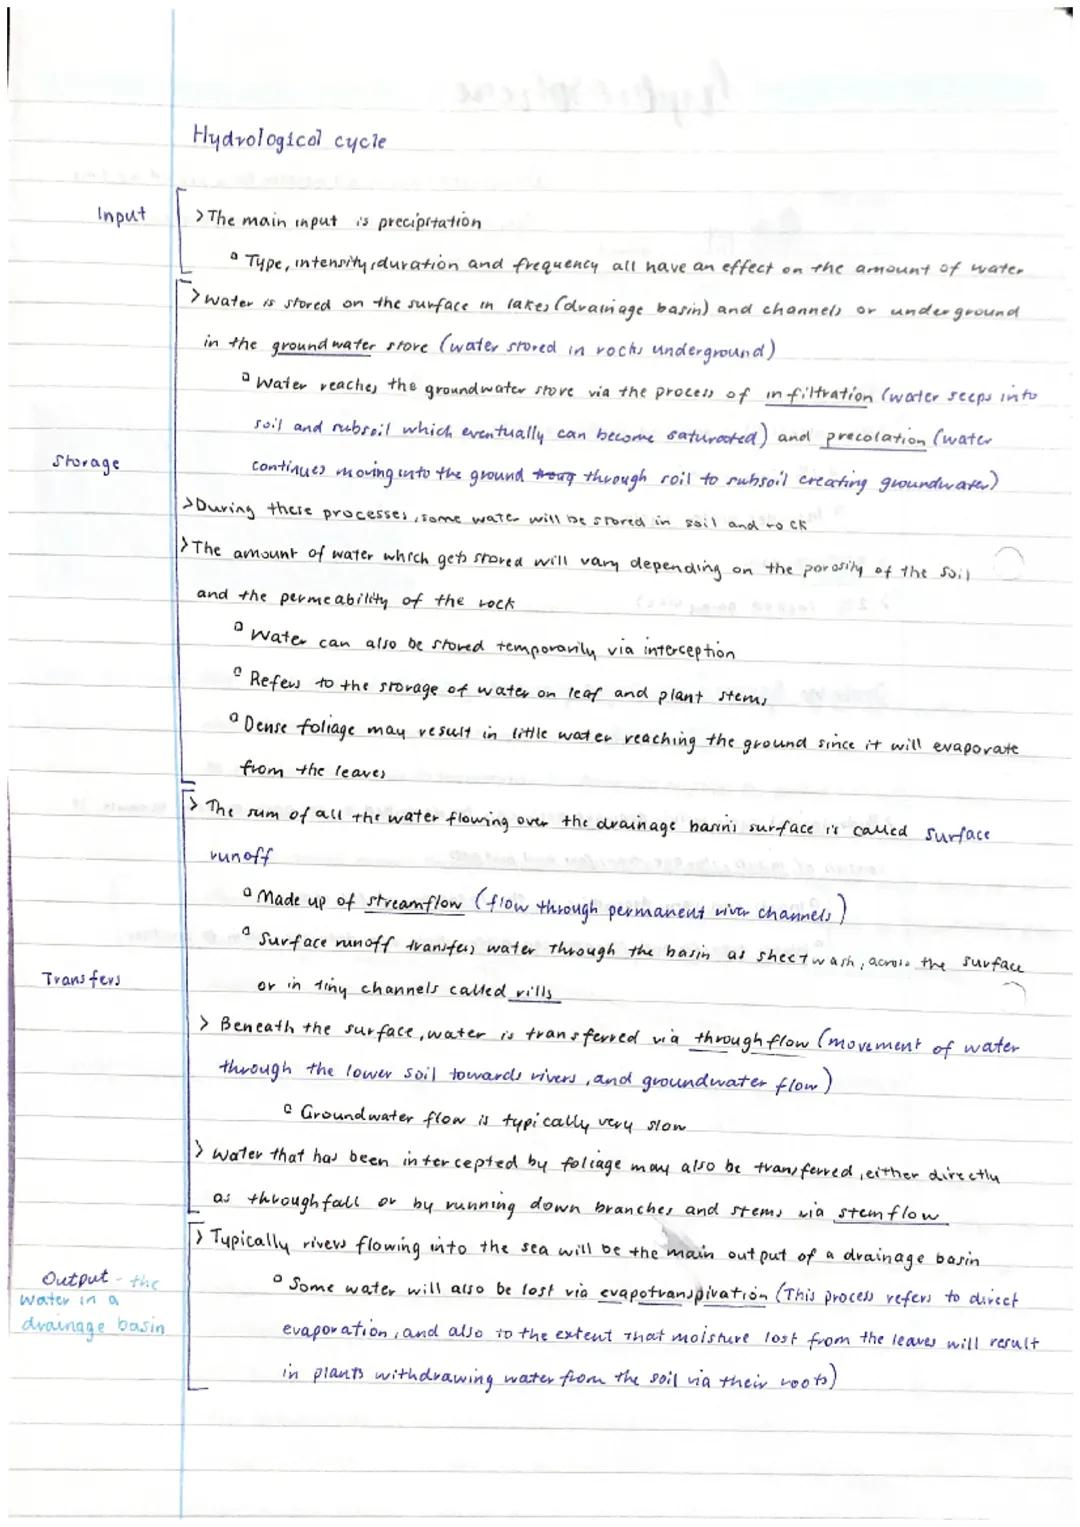 Hydrological cycle
Input
> The main input is precipitation
Type, intensity, duration and frequency all have an effect on the amount of water
> Water is stored on the surface in lakes (drainage basin) and channels or underground
in the groundwater store (water stored in rocks underground)
Water reaches the groundwater store via the process of infiltration (water seeps into
soil and subsoil which eventually can become saturated) and precolation (water
Storage
continues moving into the ground through soil to subsoil creating groundwater)
> During these processes, some water will be stored in soil and rock
> The amount of water which gets stored will vary depending on the porosity of the soil
and the permeability of the rock
Water can also be stored temporarily via interception
Refers to the storage of water on leaf and plant stems
Dense foliage may result in little water reaching the ground since it will evaporate
from the leaves
> The sum of all the water flowing over the drainage basin's surface is called surface
runoff
Made up of streamflow (flow through permanent river channels)
Surface runoff transfers water through the basin as sheetwash, across the surface
Transfers
or in tiny channels called rills
> Beneath the surface, water is transferred via throughflow (movement of water
through the lower soil towards rivers, and groundwater flow)
Groundwater flow is typically very slow
> Water that has been intercepted by foliage may also be transferred, either directly
as throughfall or by running down branches and stems via stemflow
> Typically rivers flowing into the sea will be the main output of a drainage basin
Output - the
water in a
drainage basin
Some water will also be lost via evapotranspiration (This process refers to direct
evaporation, and also to the extent that moisture lost from the leaves will result
in plants withdrawing water from the soil via their roots)